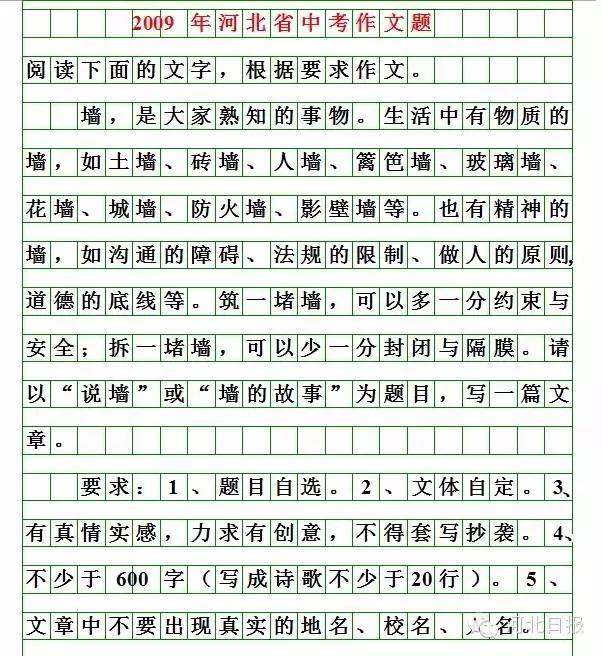 2009年河北省中考作文题
阅读下面的文字，根据要求作文。
墙，是大家熟知的事物。生活中有物质的
墙，如土墙、砖墙、人墙、篱笆墙、玻璃墙、
花墙、城墙、防火墙、影壁墙等。也有精神的
墙，如沟通的障碍、法规的限制、做人的原则，
道德的底线等。筑一堵墙，可以多一分约束与
安全；拆一堵墙，可以少一分封闭与隔膜。请
以“说墙”或“墙的故事”为题目，写一篇文
章。
要求：1、题目自选。2、文体自定。3、
有真情实感，力求有创意，不得套写抄袭。4、
不少于600字（写成诗歌不少于20行）。5、
文章中不要出现真实的地名、校名、人名。
河北日报